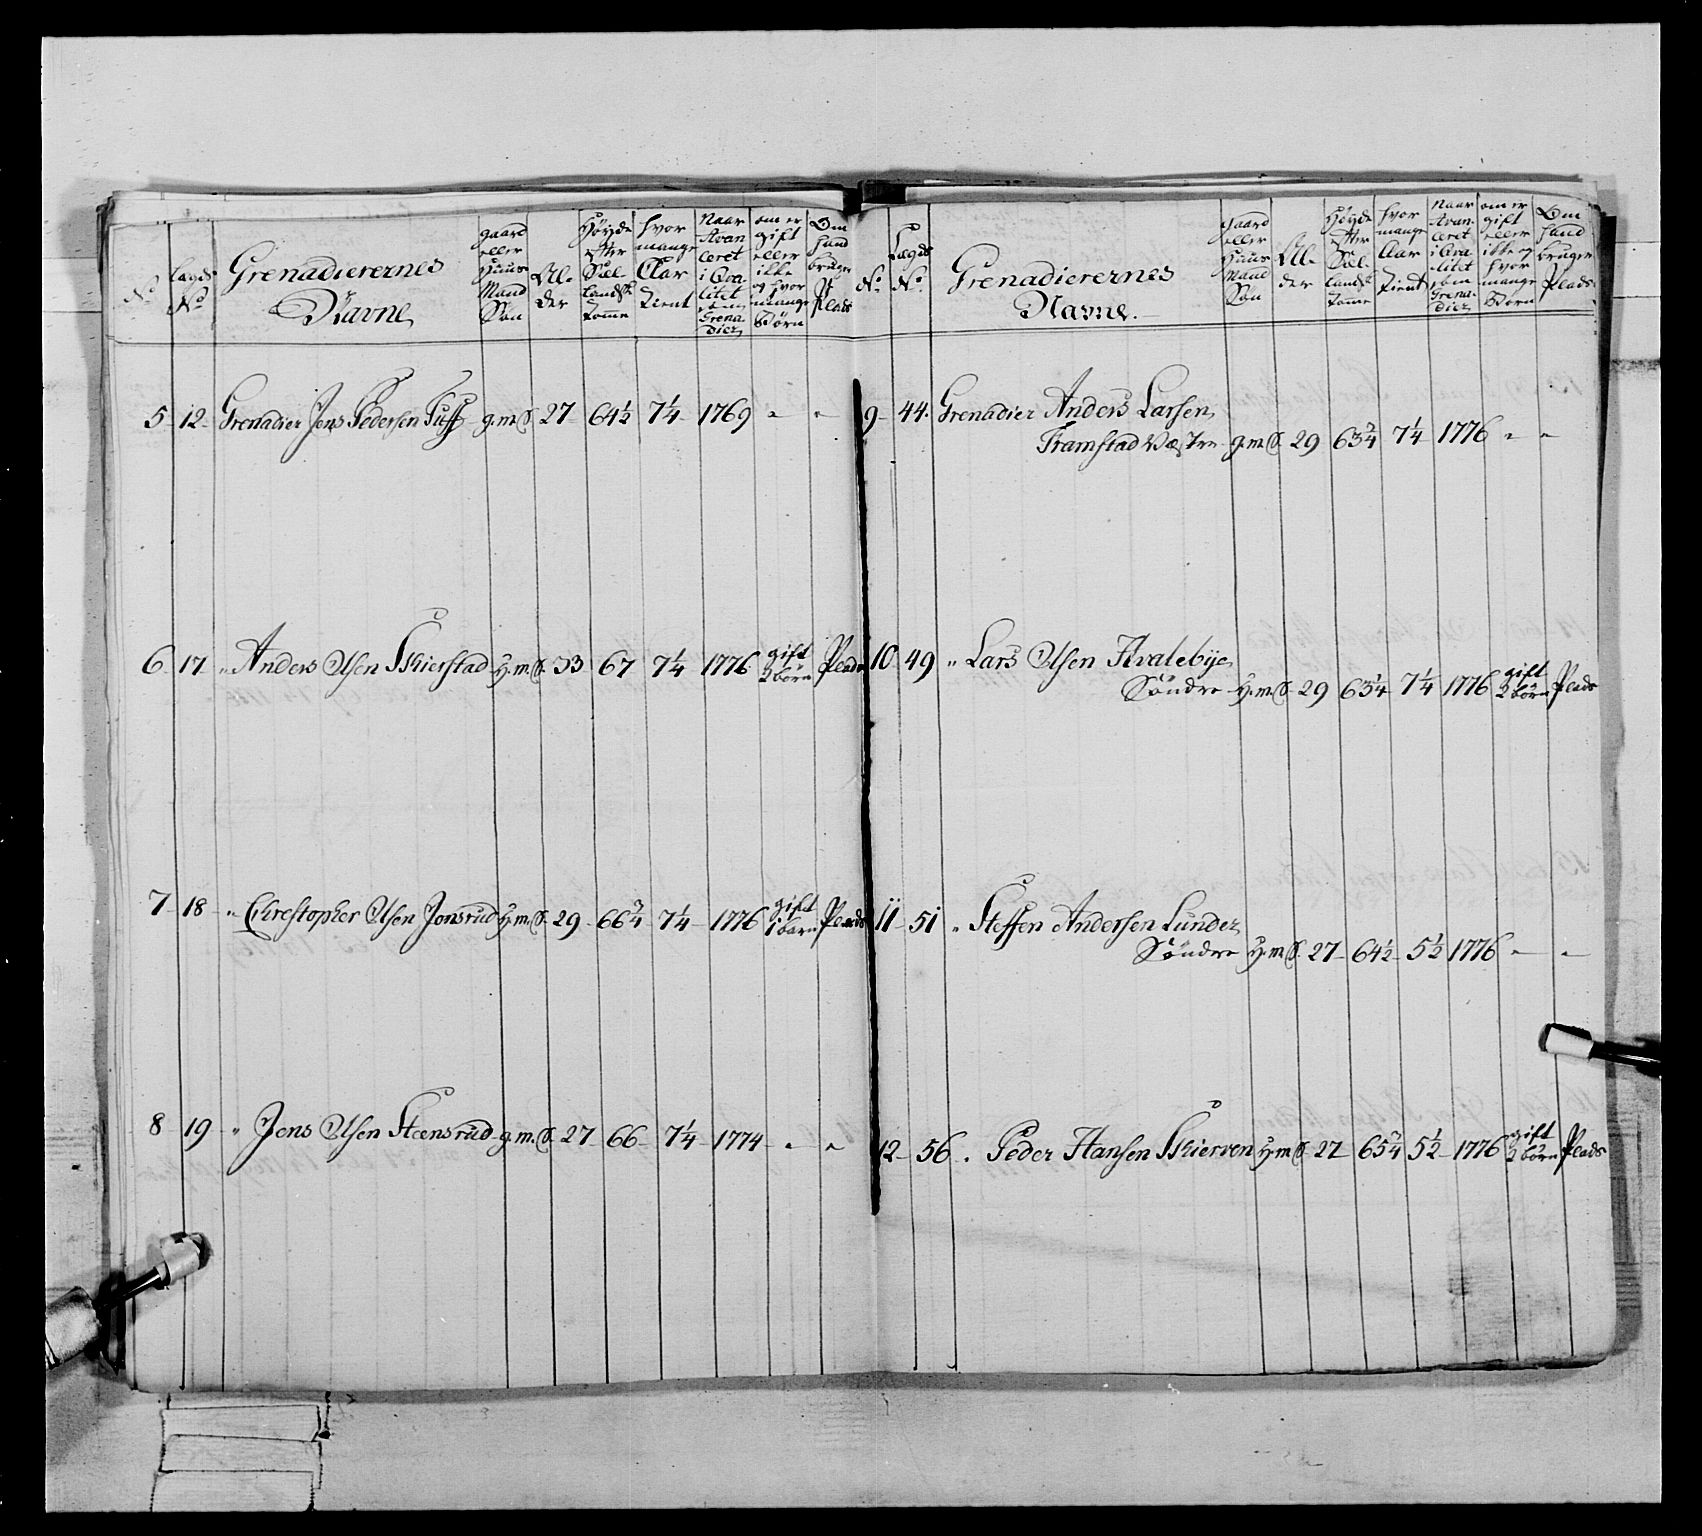 No
Lægds No
Grenadierernes Navne
gaard eller Huus Mand Søn
Al- der
Høyde efter Siæl- landsk Tomme
hvor mange Aar Tient
Naar Avan- ceret i Qva- litet som Grena- dier
om er gift eller ikke og hvor mange Börn
Om hand bruger Plads
5 12 Grenadier Jens Pedersen Tuff g.m.S. 27 64½ 7¼ 1769 " "
6 17 " Anders Olsen Skierstad H.m.S. 33 67 7¼ 1776 gift 2 börn Plads
7 18 " Christopher Olsen Jonsrud H.m.S. 29 66¾ 7¼ 1776 gift 1 barn Plads
8 19 " Jens Olsen Steensrud g.m.S. 27 66 7¼ 1774 " "
No
Lægds No.
Grenadierernes Navne.
gaard eller Huus Mand Søn
Al- der
Høyde efter Siæl- landsk Tomme
hvor mange Aar Tient
Naar Avan- ceret i Qva- litet som Grena- dier
om er gift eller ikke og hvor mange Börn
Om hand bruger Plads
9 44. Grenadier Anders Larsen
Tramstad Væstre g.m.S. 29 63¾ 7¼ 1776 " "
10 49 " Lars Olsen Hvalebye
Söndre H.m.S. 29 63¼ 7¼ 1776 gift 2 börn Plads
11 51 " Steffen Andersen Lunder
Söndre H.m.S. 27 64½ 5½ 1776 " "
12 56 " Peder Hansen Skierven H.m.S. 27 65¾ 5½ 1776 gift 2 börn Plads